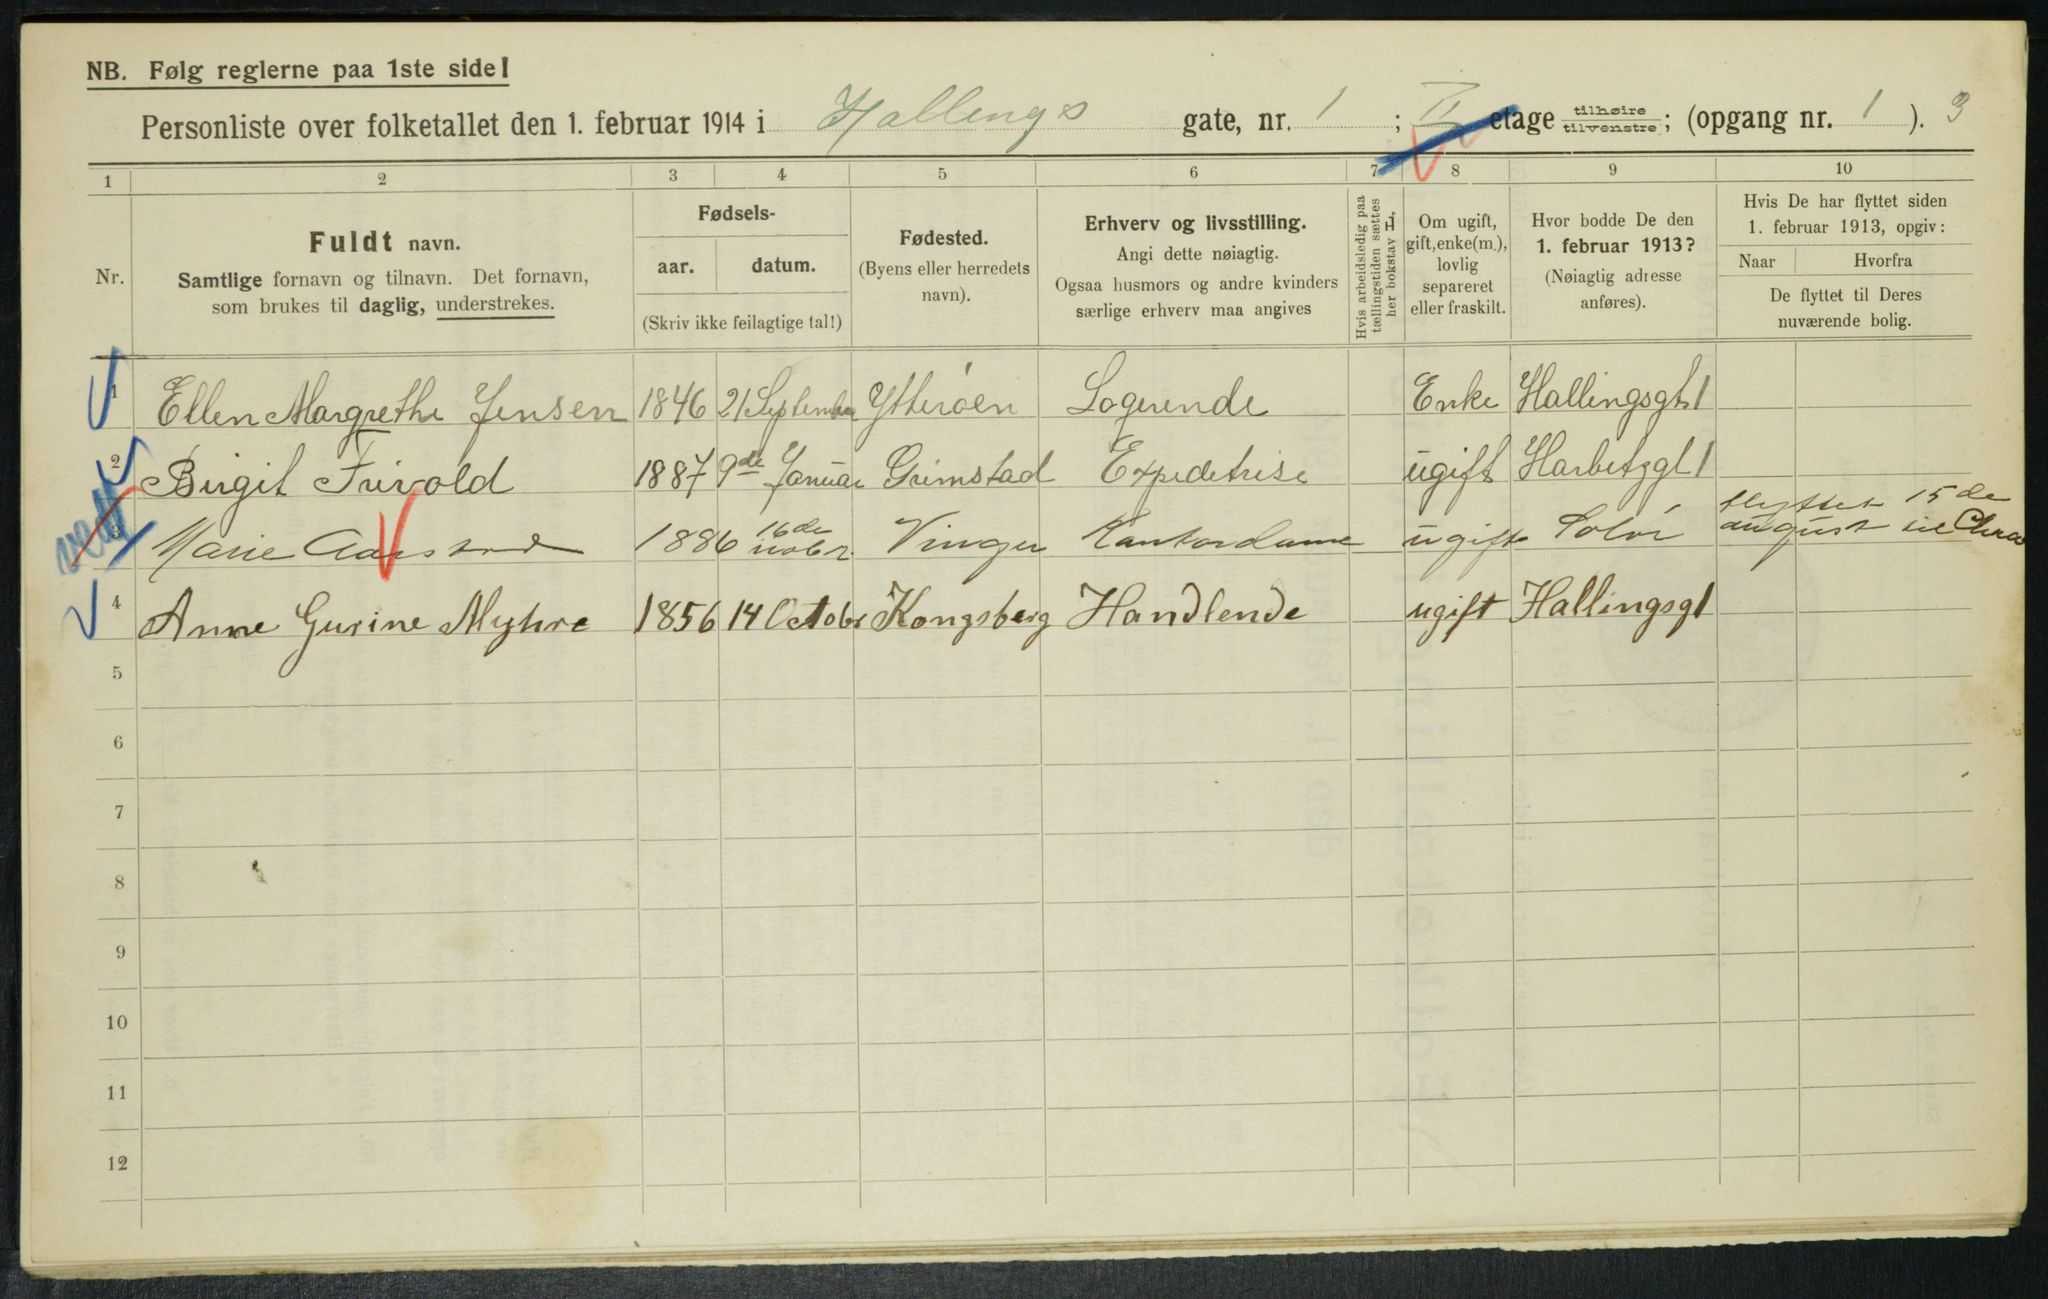 NB. Følg reglerne paa 1ste side!
Personliste over folketallet den 1. februar 1914 i Hallings gate, nr. 1 ; II etage tilhøire tilvenstre; (opgang nr. 1 ). 3
1 2 3 4 5 6 7 8 9 10
Nr.
Fuldt navn.
Samtlige fornavn og tilnavn. Det fornavn,
som brukes til daglig, understrekes.
Fødsels-
aar. datum.
(Skriv ikke feilagtige tal!)
Fødested.
(Byens eller herredets
navn).
Erhverv og livsstilling.
Angi dette nøiagtig.
Ogsaa husmors og andre kvinders
særlige erhverv maa angives
Hvis arbeidsledig paa
tællingstiden sættes
her bokstav L,
Om ugift,
gift, enke(m.),
lovlig
separeret
eller fraskilt.
Hvor bodde De den
1. februar 1913?
(Nøiagtig adresse
anføres).
Hvis De har flyttet siden
1. februar 1913, opgiv:
Naar Hvorfra
De flyttet til Deres
nuværende bolig.
1 Ellen Margrethe Jensen 1846 21 September Ytterøen Logerende Enke Hallingsgt 1
2 Birgit Frivold 1887 9de Januar Grimstad Expeditrise ugift Harbitzgt 1
3 Marie 1886 16de novbr. Vinger Kontordame ugift Solør flyttet 15de
august til Chra
4 Anne Gurine Myhre 1856 14 Octobr Kongsberg Handlende ugift Hallingsg 1
5
6
7
8
9
10
11
12